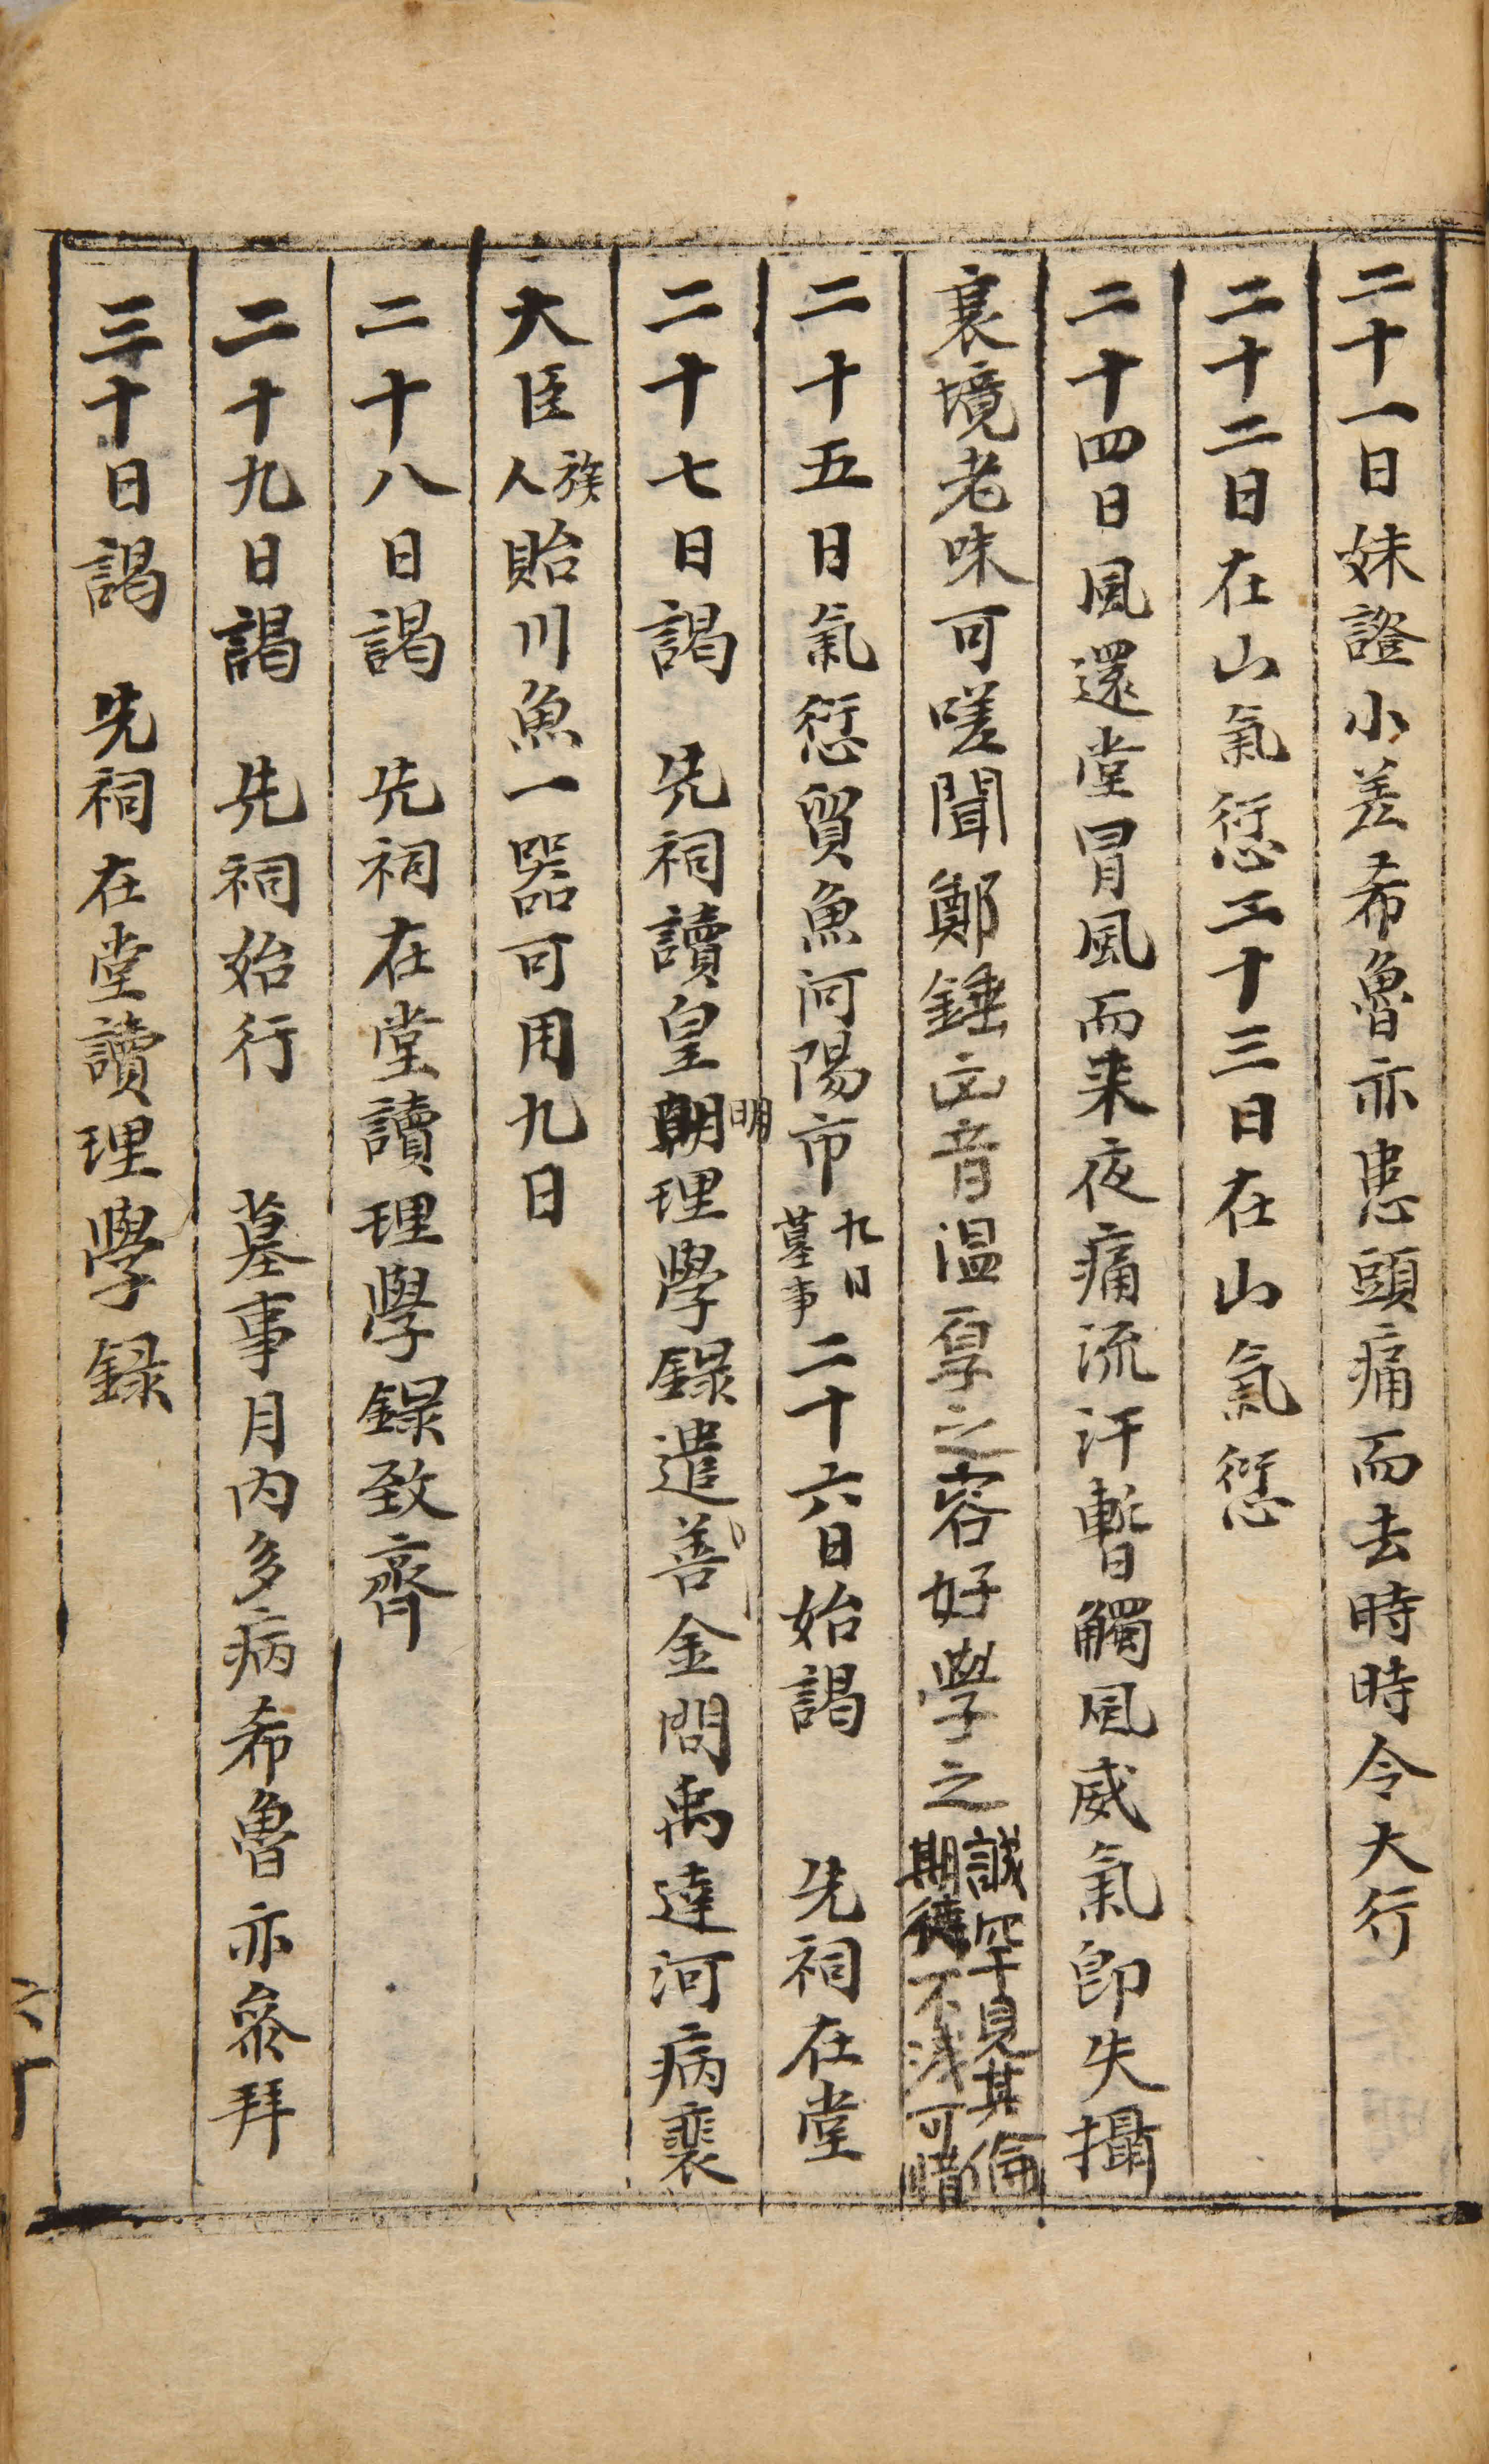 二十一日妹證小差希魯亦患頭痛而去時時令大行
二十二日在山氣愆二十三日在山氣愆
二十四日風還堂冒風而来夜痛流汗暫觸風威氣卽失攝
衰境老味可嗟聞鄭錘文音温厚之容好學之誠罕見其倫期待不淺可惜
二十五日氣愆貿魚河陽市九日墓事二十六日始謁 先祠在堂
二十七日謁 先祠讀皇明朝理學錄遣善金問禹達河病裵
大臣族人貽川魚一器可用九日
二十八日謁 先祠在堂讀理學錄致齊
二十九日謁 先祠始行 墓事月内多病希魯亦叅拜
三十日謁 先祠在堂讀理學録
六